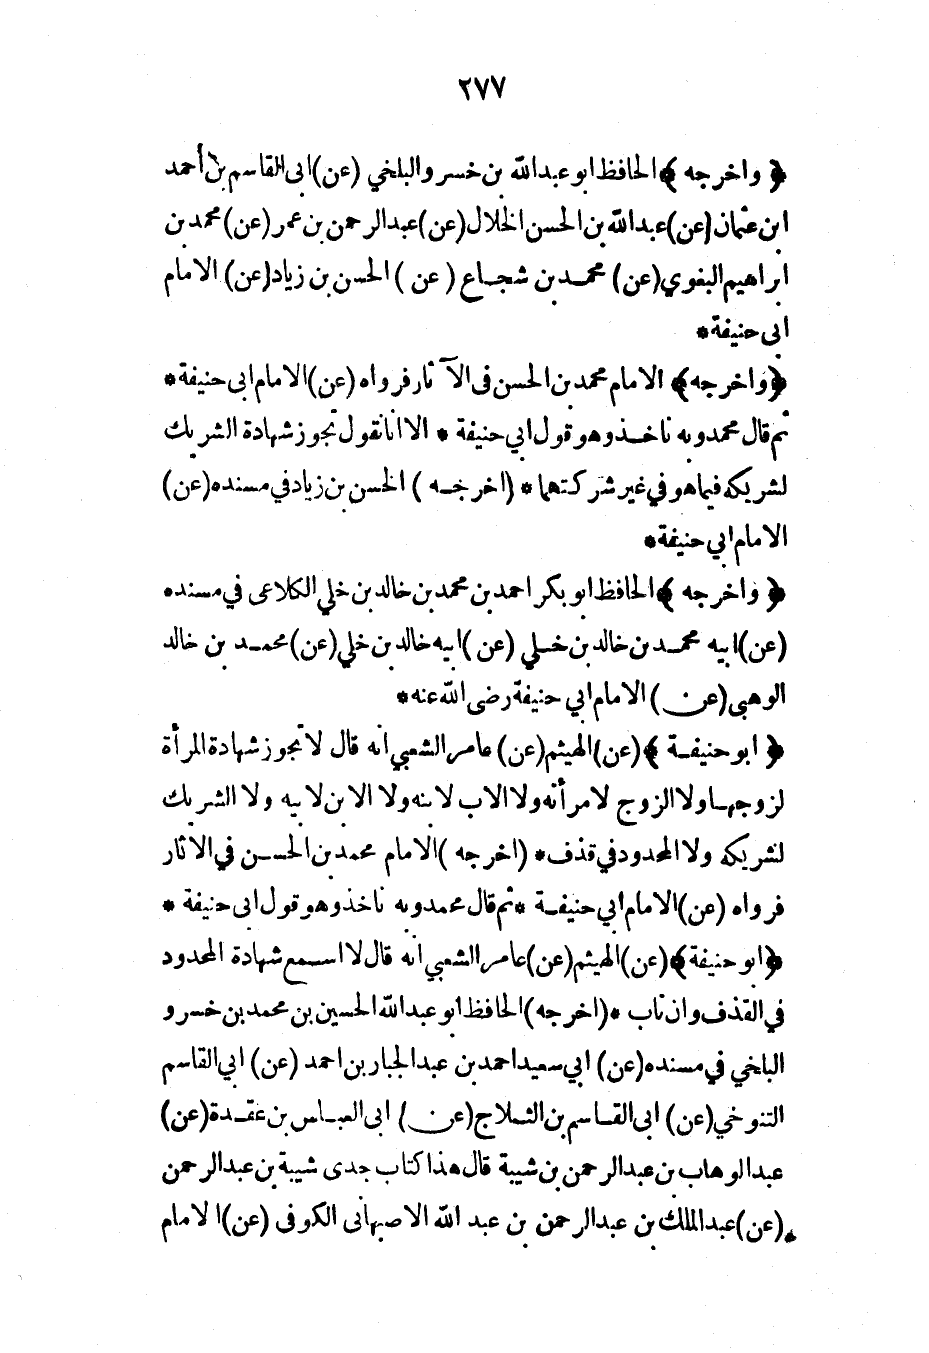 ٢٧٧
﴿ واخرجه ﴾ الحافظ ابو عبد الله بن خسرو البلخي (عن) ابى القاسم بن أحمد
ابن عثمان (عن) عبد الله بن الحسن الخلال (عن) عبد الرحمن بن عمر (عن) محمد بن
ابراهيم البغوي (عن) محمد بن شجاع (عن) الحسن بن زياد (عن) الامام
ابى حنيفة *
﴿ واخرجه ﴾ الامام محمد بن الحسن فى الآثار فرواه (عن) الامام ابى حنيفة *
ثم قال محمد وبه ناخذ وهو قول ابي حنيفة * الا انا نقول تجوز شهادة الشريك
لشريكه فيما هو في غير شركتهما * (اخرجه) الحسن بن زياد في مسنده (عن)
الامام ابي حنيفة *
﴿ واخرجه ﴾ الحافظ ابو بكر احمد بن محمد بن خالد بن خلي الكلاعى في مسنده
(عن) ابيه محمد بن خالد بن خلي (عن) ابيه خالد بن خلي (عن) محمد بن خالد
الوهبى (عن) الامام ابي حنيفة رضى الله عنه *
﴿ ابو حنيفة ﴾ (عن) الهيثم (عن) عامر الشعبي انه قال لا تجوز شهادة المرأة
لزوجها ولا الزوج لامرأته ولا الاب لابنه ولا الابن لابيه ولا الشريك
لشريكه ولا المحدود في قذف * (اخرجه) الامام محمد بن الحسن في الاثار
فرواه (عن) الامام ابي حنيفة * ثم قال محمد وبه ناخذ وهو قول ابى حنيفة *
﴿ ابو حنيفة ﴾ (عن) الهيثم (عن) عامر الشعبي انه قال لا اسمع شهادة المحدود
في القذف وان تاب * (اخرجه) الحافظ ابو عبد الله الحسين بن محمد بن خسرو
البلخي في مسنده (عن) ابي سعيد احمد بن عبد الجبار بن احمد (عن) ابي القاسم
التنوخي (عن) ابى القاسم بن الثلاج (عن) ابى العباس بن عقدة (عن)
عبد الوهاب بن عبد الرحمن بن شيبة قال هذا كتاب جدى شيبة بن عبد الرحمن
(عن) عبد الملك بن عبد الرحمن بن عبد الله الاصبهانى الكوفى (عن) الامام